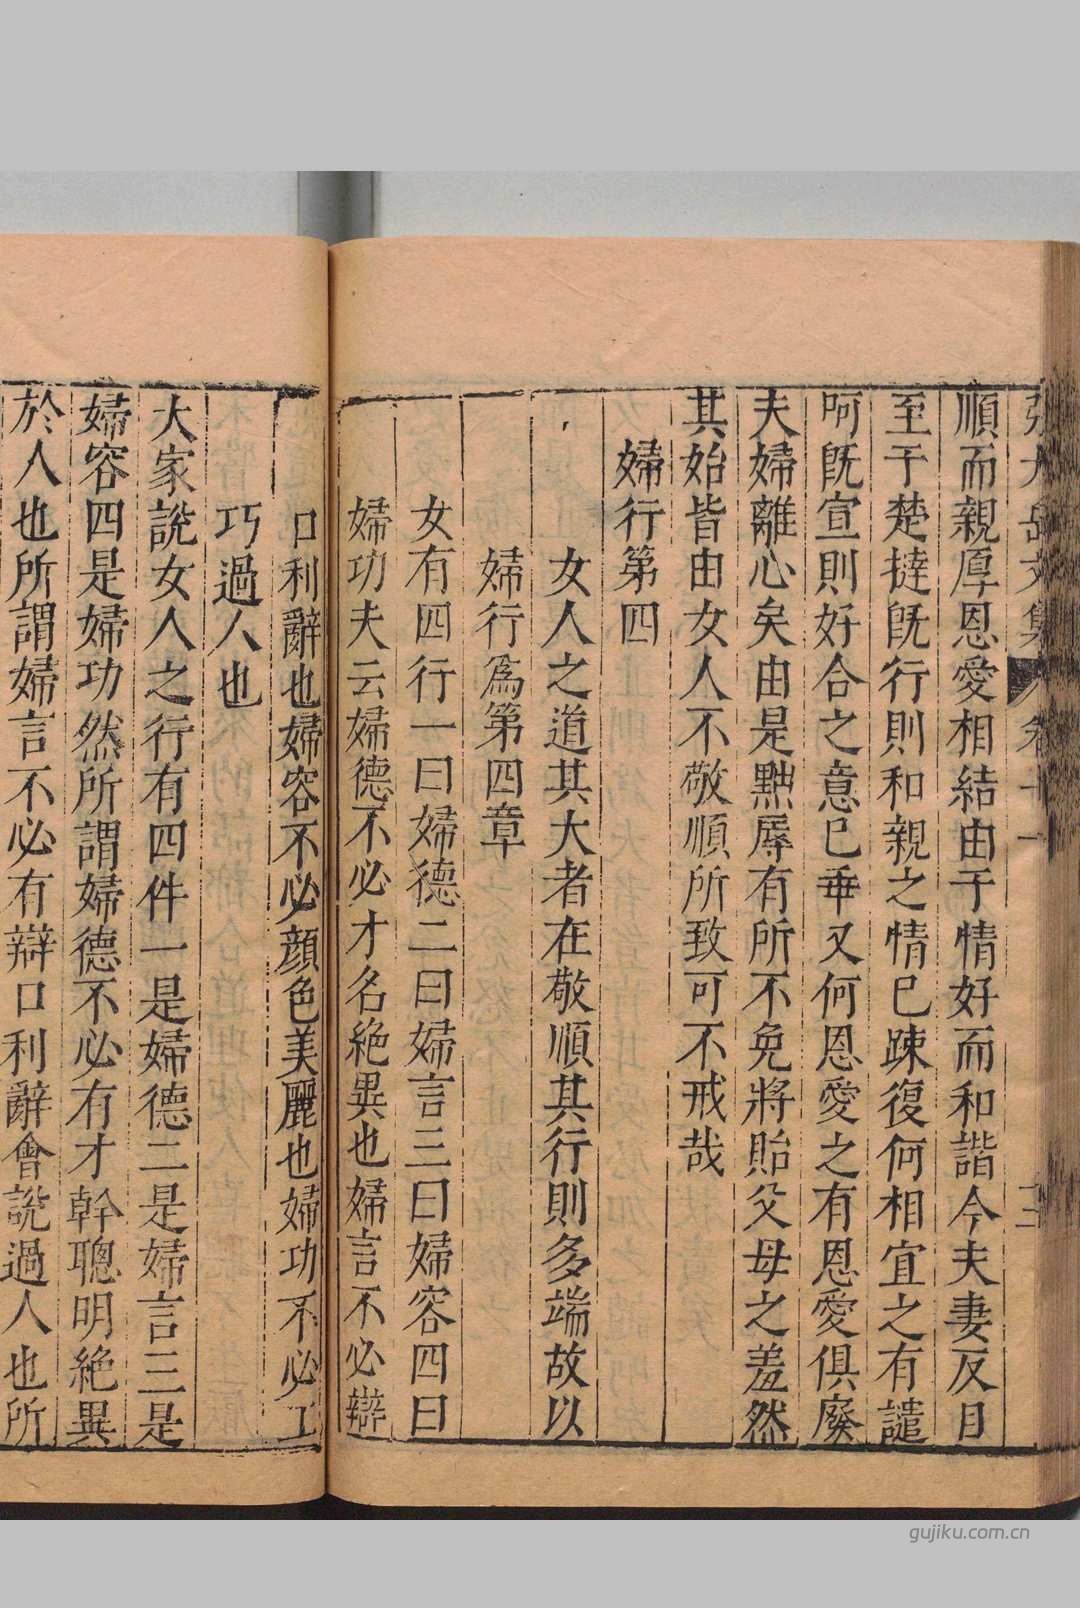 張太岳文集 卷十一 十三
順而親厚恩愛相結由于情好而和諧今夫妻反目
至于楚撻旣行則和親之情已踈復何相宜之有譴
呵旣宣則好合之意已乖又何恩愛之有恩愛俱廢
夫婦離心矣由是㸃辱有所不免將貽父母之羞然
其始皆由女人不敬順所致可不戒哉
婦行第四
女人之道其大者在敬順其行則多端故以
婦行爲第四章
女有四行一曰婦德二曰婦言三曰婦容四曰
婦功夫云婦德不必才名絶異也婦言不必辯
口利辭也婦容不必顔色美麗也婦功不必工
巧過人也
大家說女人之行有四件一是婦德二是婦言三是
婦容四是婦功然所謂婦德不必有才幹聰明絶異
於人也所謂婦言不必有辯口利辭會說過人也所
gujiku.com.cn